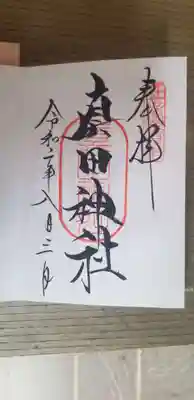 奉拝
真田神社
令和二年八月三日